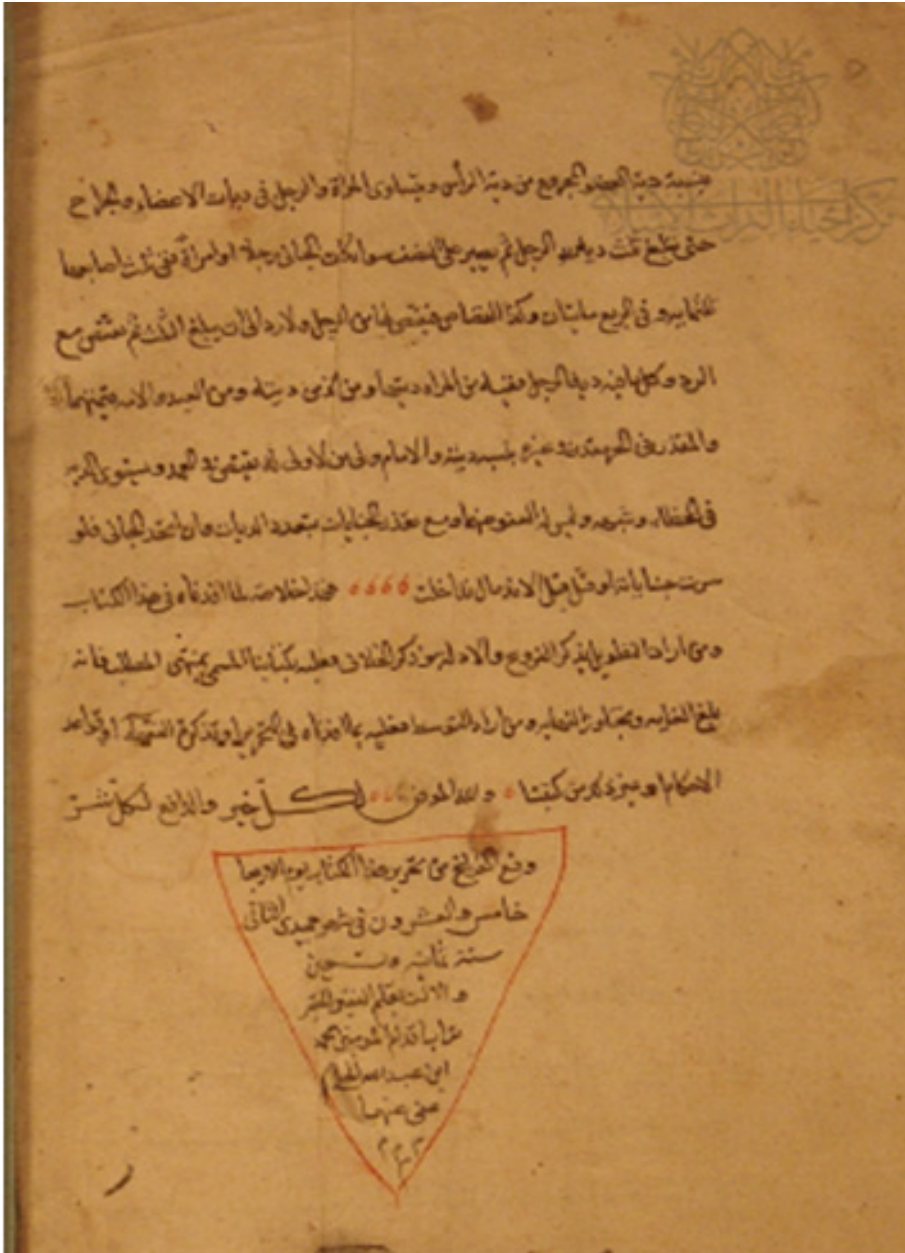 بنسبة دية العضو المجروح من دية الرأس ويتساوى المراة والرجل في ديات الاعضاء والجراح
حتى يبلغ ثلث دية الرجل ثم يصير على النصف سواء كان الجاني رجلا او امرأة ففي ثلث اصابعها
وفي الربع مايتان وكذا القصاص فيقتص لها من الرجل ولا رد الى ان يبلغ الثلث ثم يقتص مع
الرد وكل ما فيه دية الرجل ففيه من المراة ديتها ومن الذمي ديته ومن العبد والامة قيمتهما
والمقدر في الحر مقدر في غيره بنسبة ديته والامام ولي من لا ولي له يقتص في العمد ويستوفي الدية
في الخطاء وشبهه وليس له العفو عنهما ومع تعدد الجنايات يتعدد الديات وان اتحد الجاني فلو
سرت جناياته او قتل قبل الاندمال تداخلت هذا خلاصة ما افدناه في هذا الكتاب
ومن اراد التطويل بذكر الفروع والادلة وذكر الخلاف فعليه بكتابنا المسمى بمنتهى المطلب فانه
بلغ الغاية وتجاوز النهاية ومن اراد التوسط فعليه بما افدناه في التحرير او تذكرة الفقهاء او قواعد
الاحكام او غير ذلك من كتبنا والله الموفق لكل خير والدافع لكل شر
وقع الفراغ من تحرير هذا الكتاب يوم الاربعا
خامس والعشرون في شهر جميدى الثاني
سنة ثمانية وتسعين
والالف بقلم الفقير الحقير
تراب اقدام المؤمنين
ابن عبد الله
عفي عنهما
مركز احياء التراث الاسلامي